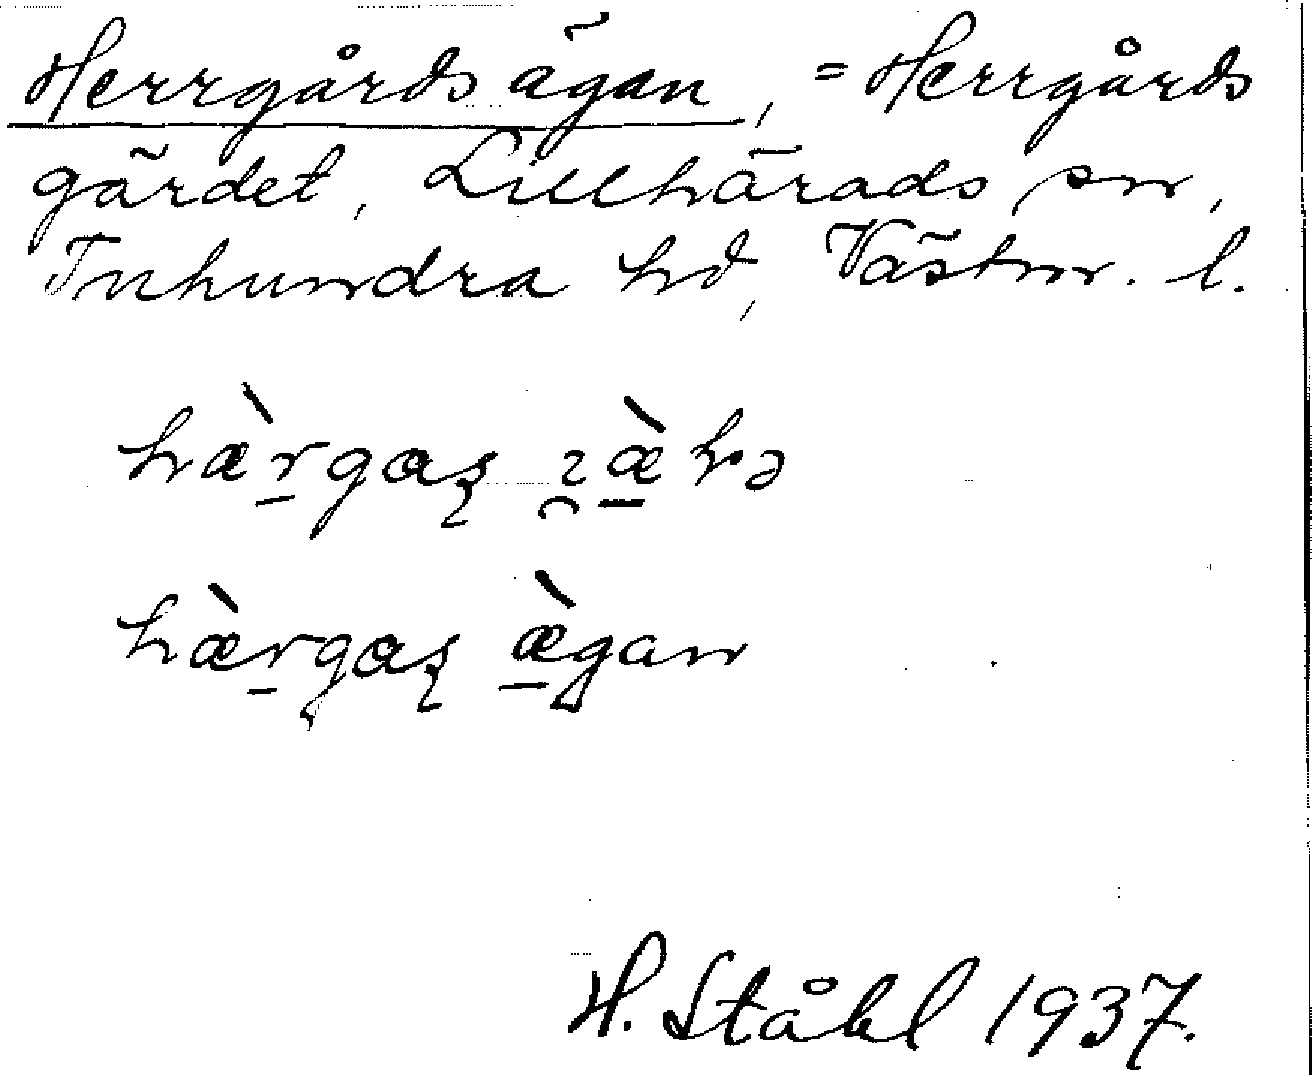 Herrgårdsägan, = Herrgårds
gärdet, Lillhärads sn,
Tuhundra hd, Västm. l.
hæ̀r̠gaʂ
hæ̀r̠gaʂ æ̠̀gan
H. Ståhl 1937.